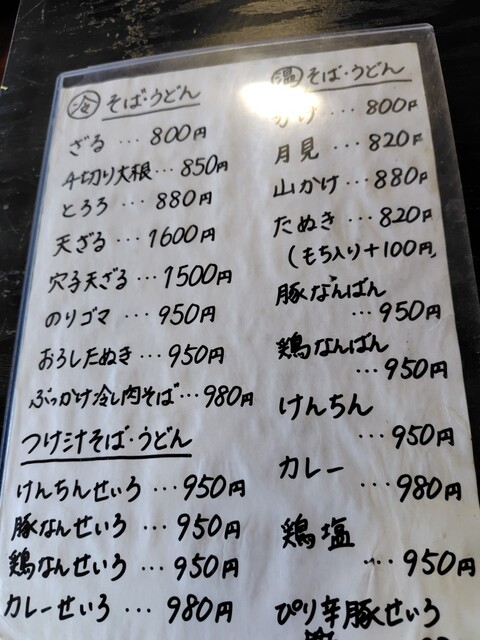 冷 そば・うどん
ざる … 800円
千切り大根 … 850円
とろろ … 880円
天ざる … 1600円
穴子天ざる … 1500円
のりゴマ … 950円
おろしたぬき … 950円
ぶっかけ冷し肉そば … 980円
つけ汁そば・うどん
けんちんせいろ … 950円
豚なんせいろ … 950円
鶏なんせいろ … 950円
カレーせいろ … 980円
温 そば・うどん
かけ … 800円
月見 … 820円
山かけ … 880円
たぬき … 820円
(もち入り+100円)
豚なんばん
… 950円
鶏なんばん
… 950円
けんちん
… 950円
カレー
… 980円
鶏塩
… 950円
ぴり辛豚せいろ